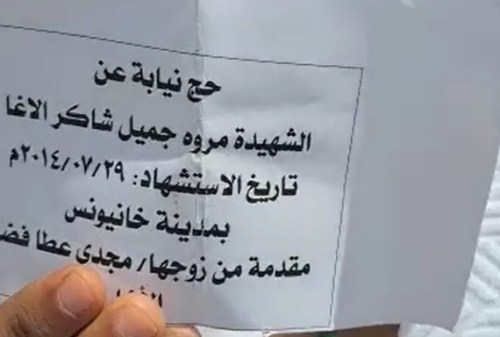 حج نيابة عن
الشهيدة مروه جميل شاكر الاغا
تاريخ الاستشهاد: ٢٠١٤/٠٧/٢٩م
بمدينة خانيونس
مقدمة من زوجها/ مجدي عطا